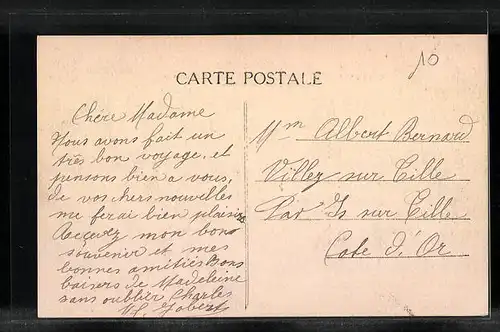 10
CARTE POSTALE
Chère Madame
Nous avons fait un
très bon voyage, et
pensons bien a vous,
de vos chers nouvelles
me ferai bien plaisir
Recevez mon bons
souvenir et mes
bonnes amitiés Bons
baisers de Madeleine
sans oublier Charles
Jobert
Mm Albert Bernard
Villey sur Tille
Par Is sur Tille
Cote d'Or